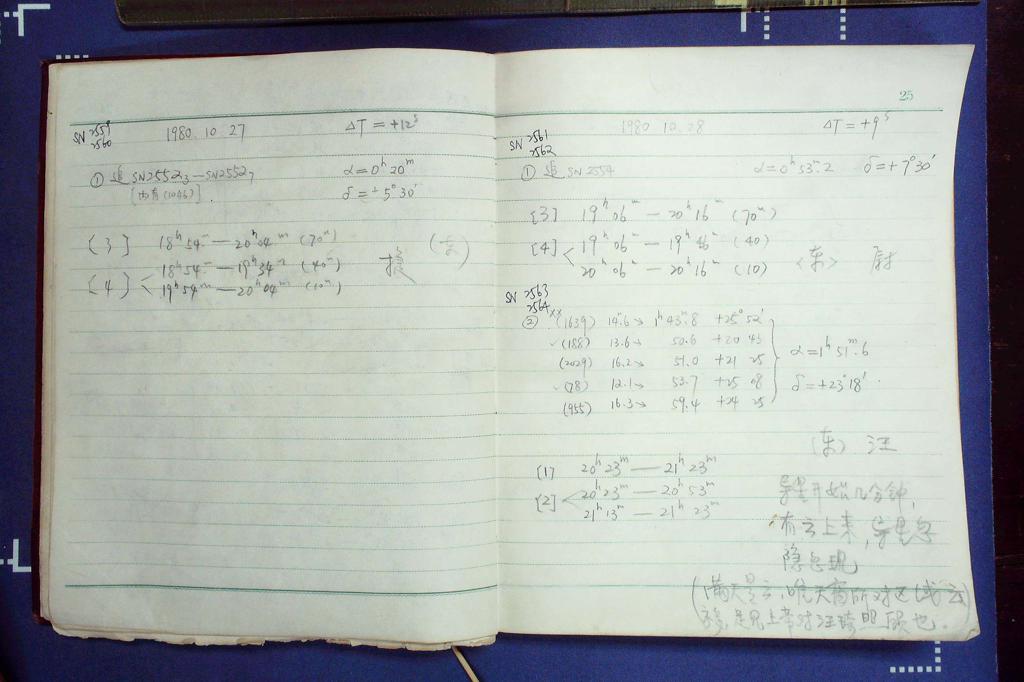 SN 2559
2560
1980.10.27
ΔT = +12ˢ
① 追 SN2552₃—SN2552₇
α=0ʰ20ᵐ
[内有(1046)].
δ=+5°30′
[3] 18ʰ54ᵐ—20ʰ04ᵐ (70ᵐ)
[4] 18ʰ54ᵐ—19ʰ34ᵐ (40ᵐ)
19ʰ54ᵐ—20ʰ04ᵐ (10ᵐ)
25
SN 2561
2562
1980 10.28
ΔT=+9ˢ
① 追 SN2554
α=0ʰ53ᵐ.2 δ=+7°30′
[3] 19ʰ06ᵐ—20ʰ16ᵐ (70ᵐ)
[4] 19ʰ06ᵐ—19ʰ46ᵐ (40)
20ʰ06ᵐ—20ʰ16ᵐ (10)
<东> 尉
SN 2563
2564xx
② (1639) 14ᵐ.6→ 1ʰ43ᵐ.8 +25°52′
(188) 13.6→ 50.6 +20 43
(2029) 16.2→ 51.0 +21 25
(78) 12.1→ 53.7 +25 08
(955) 16.3→ 59.4 +24 25
α=1ʰ51ᵐ.6
δ=+23°18′
(东) 汪
[1] 20ʰ23ᵐ—21ʰ23ᵐ
[2] 20ʰ23ᵐ—20ʰ53ᵐ
21ʰ13ᵐ—21ʰ23ᵐ
导星开始几分钟,
有云上来,导星忽
隐忽现
(满天是云,唯天窗所对区域云
移,是见上帝对汪 也.)